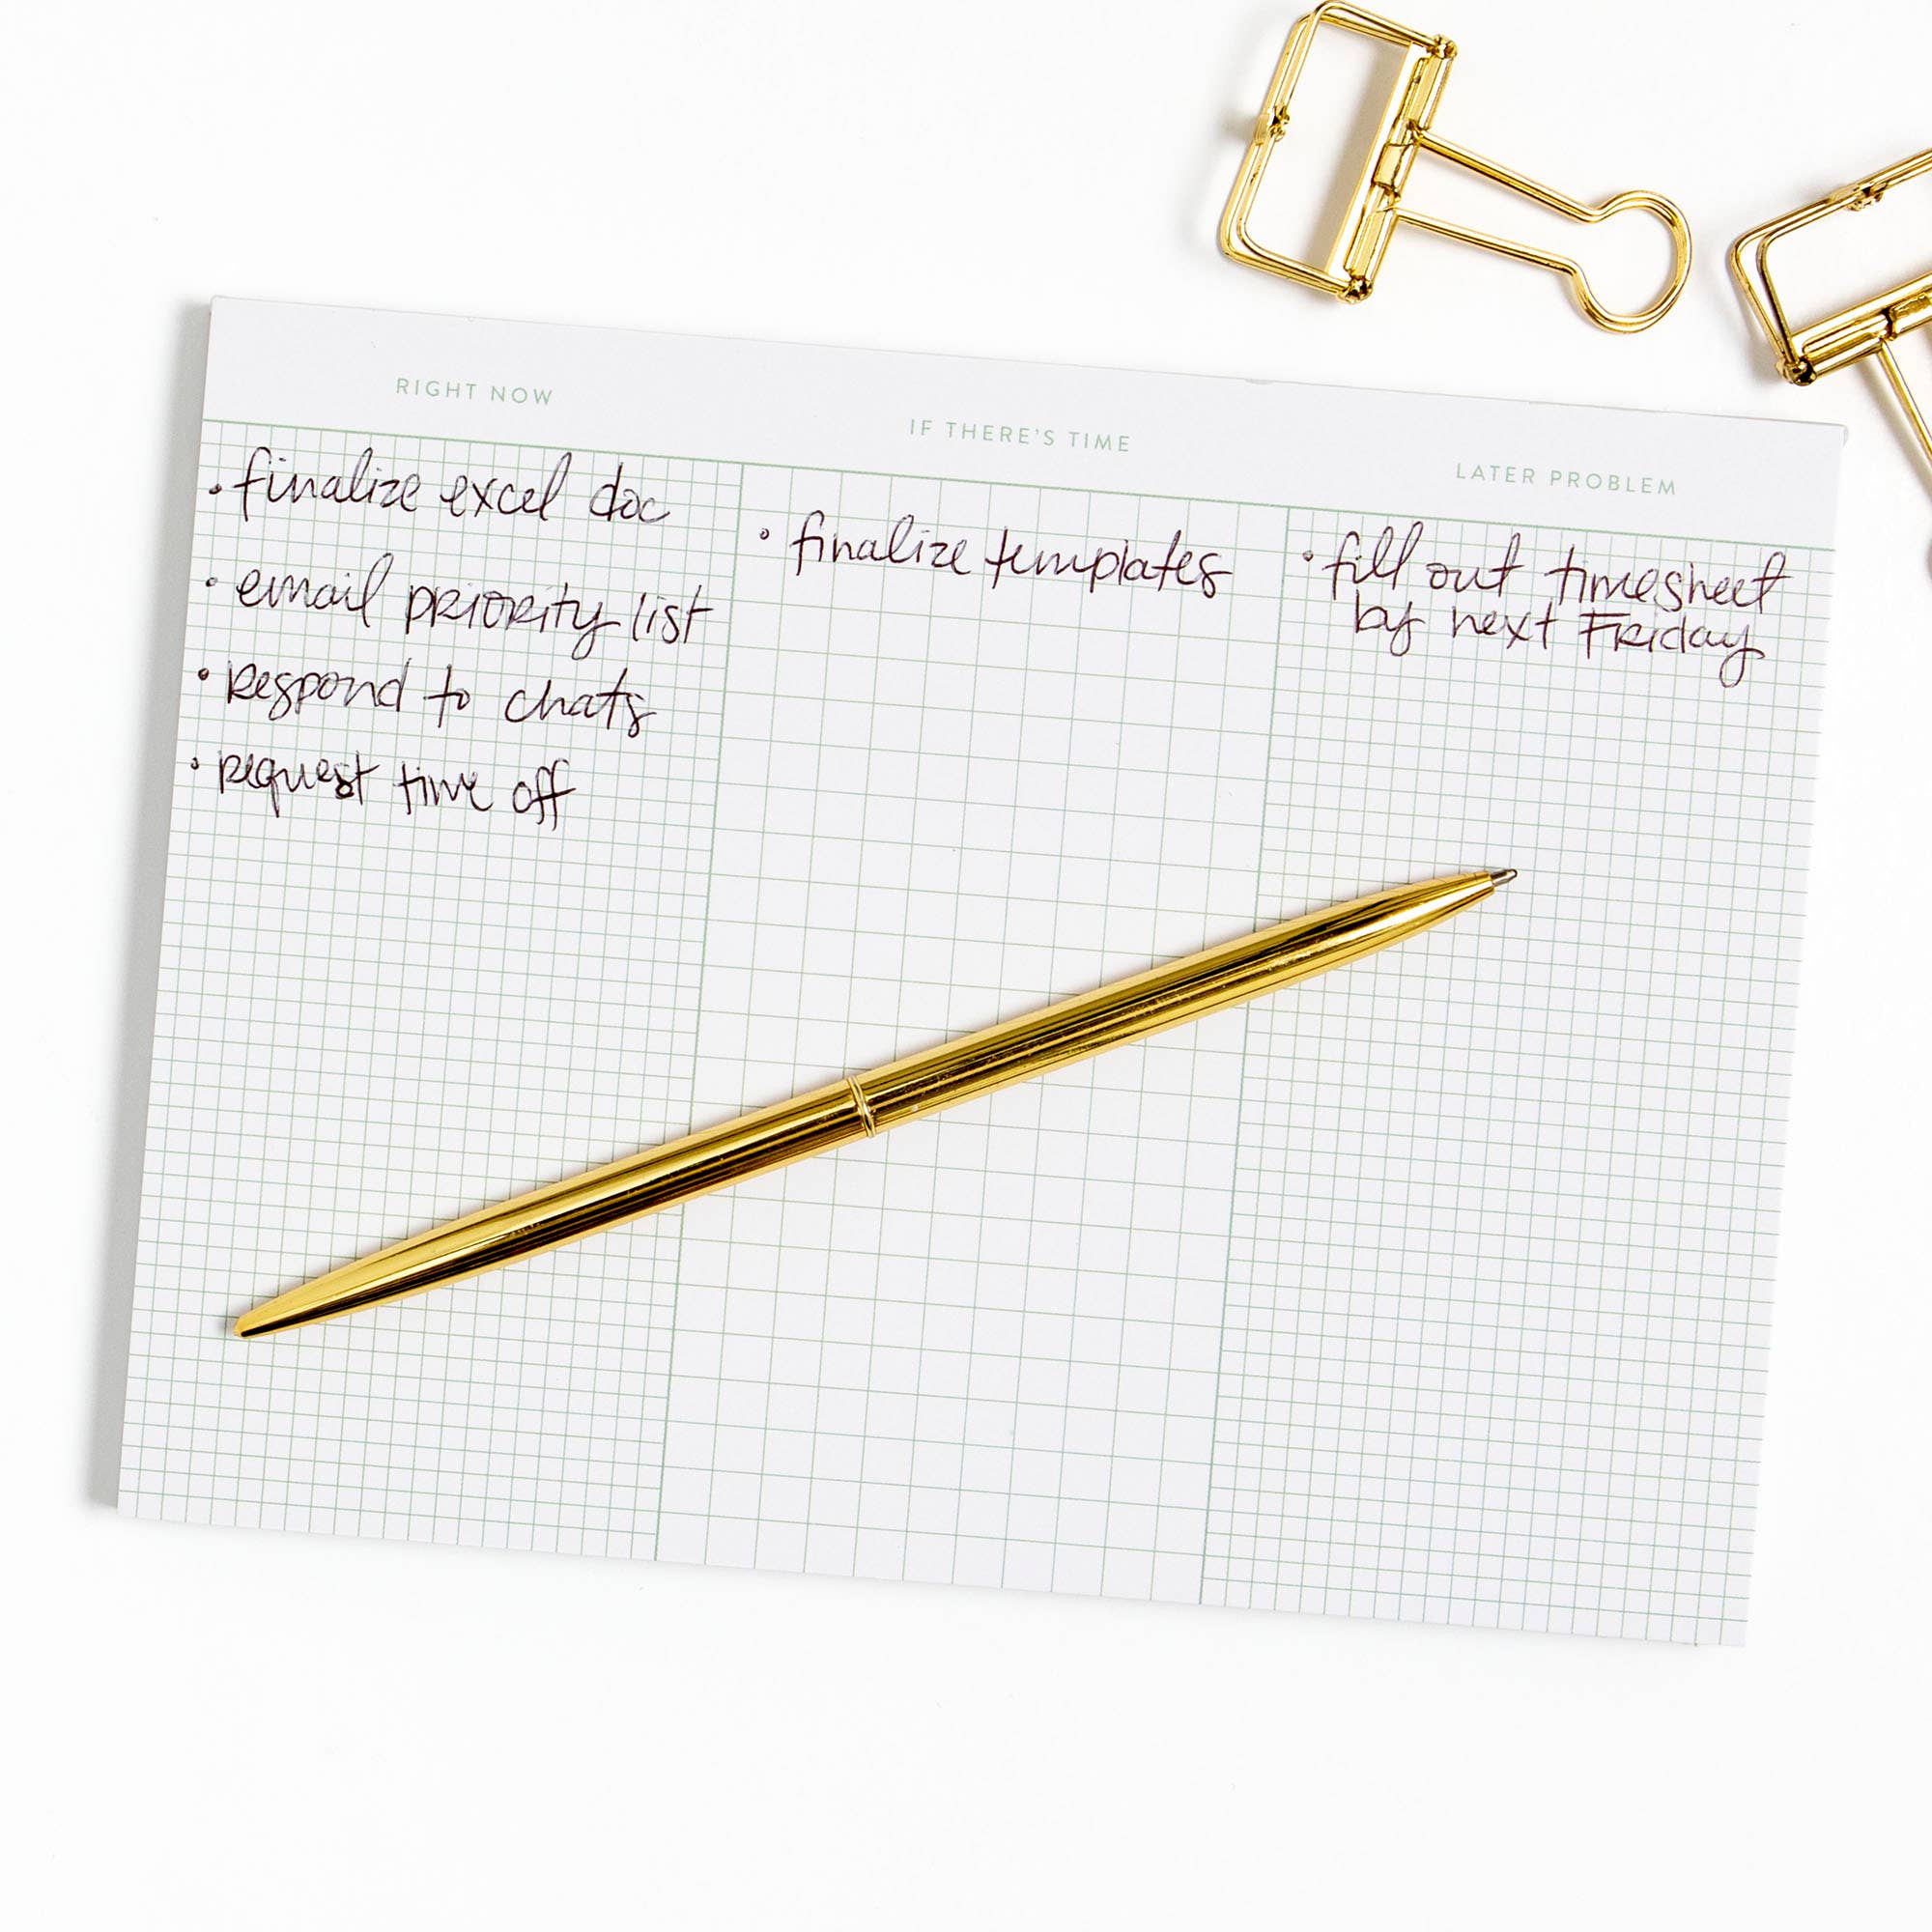 RIGHT NOW
• finalize excel doc
• email priority list
• Respond to chats
• request time off
IF THERE'S TIME
• finalize templates
LATER PROBLEM
• fill out timesheet
by next Friday